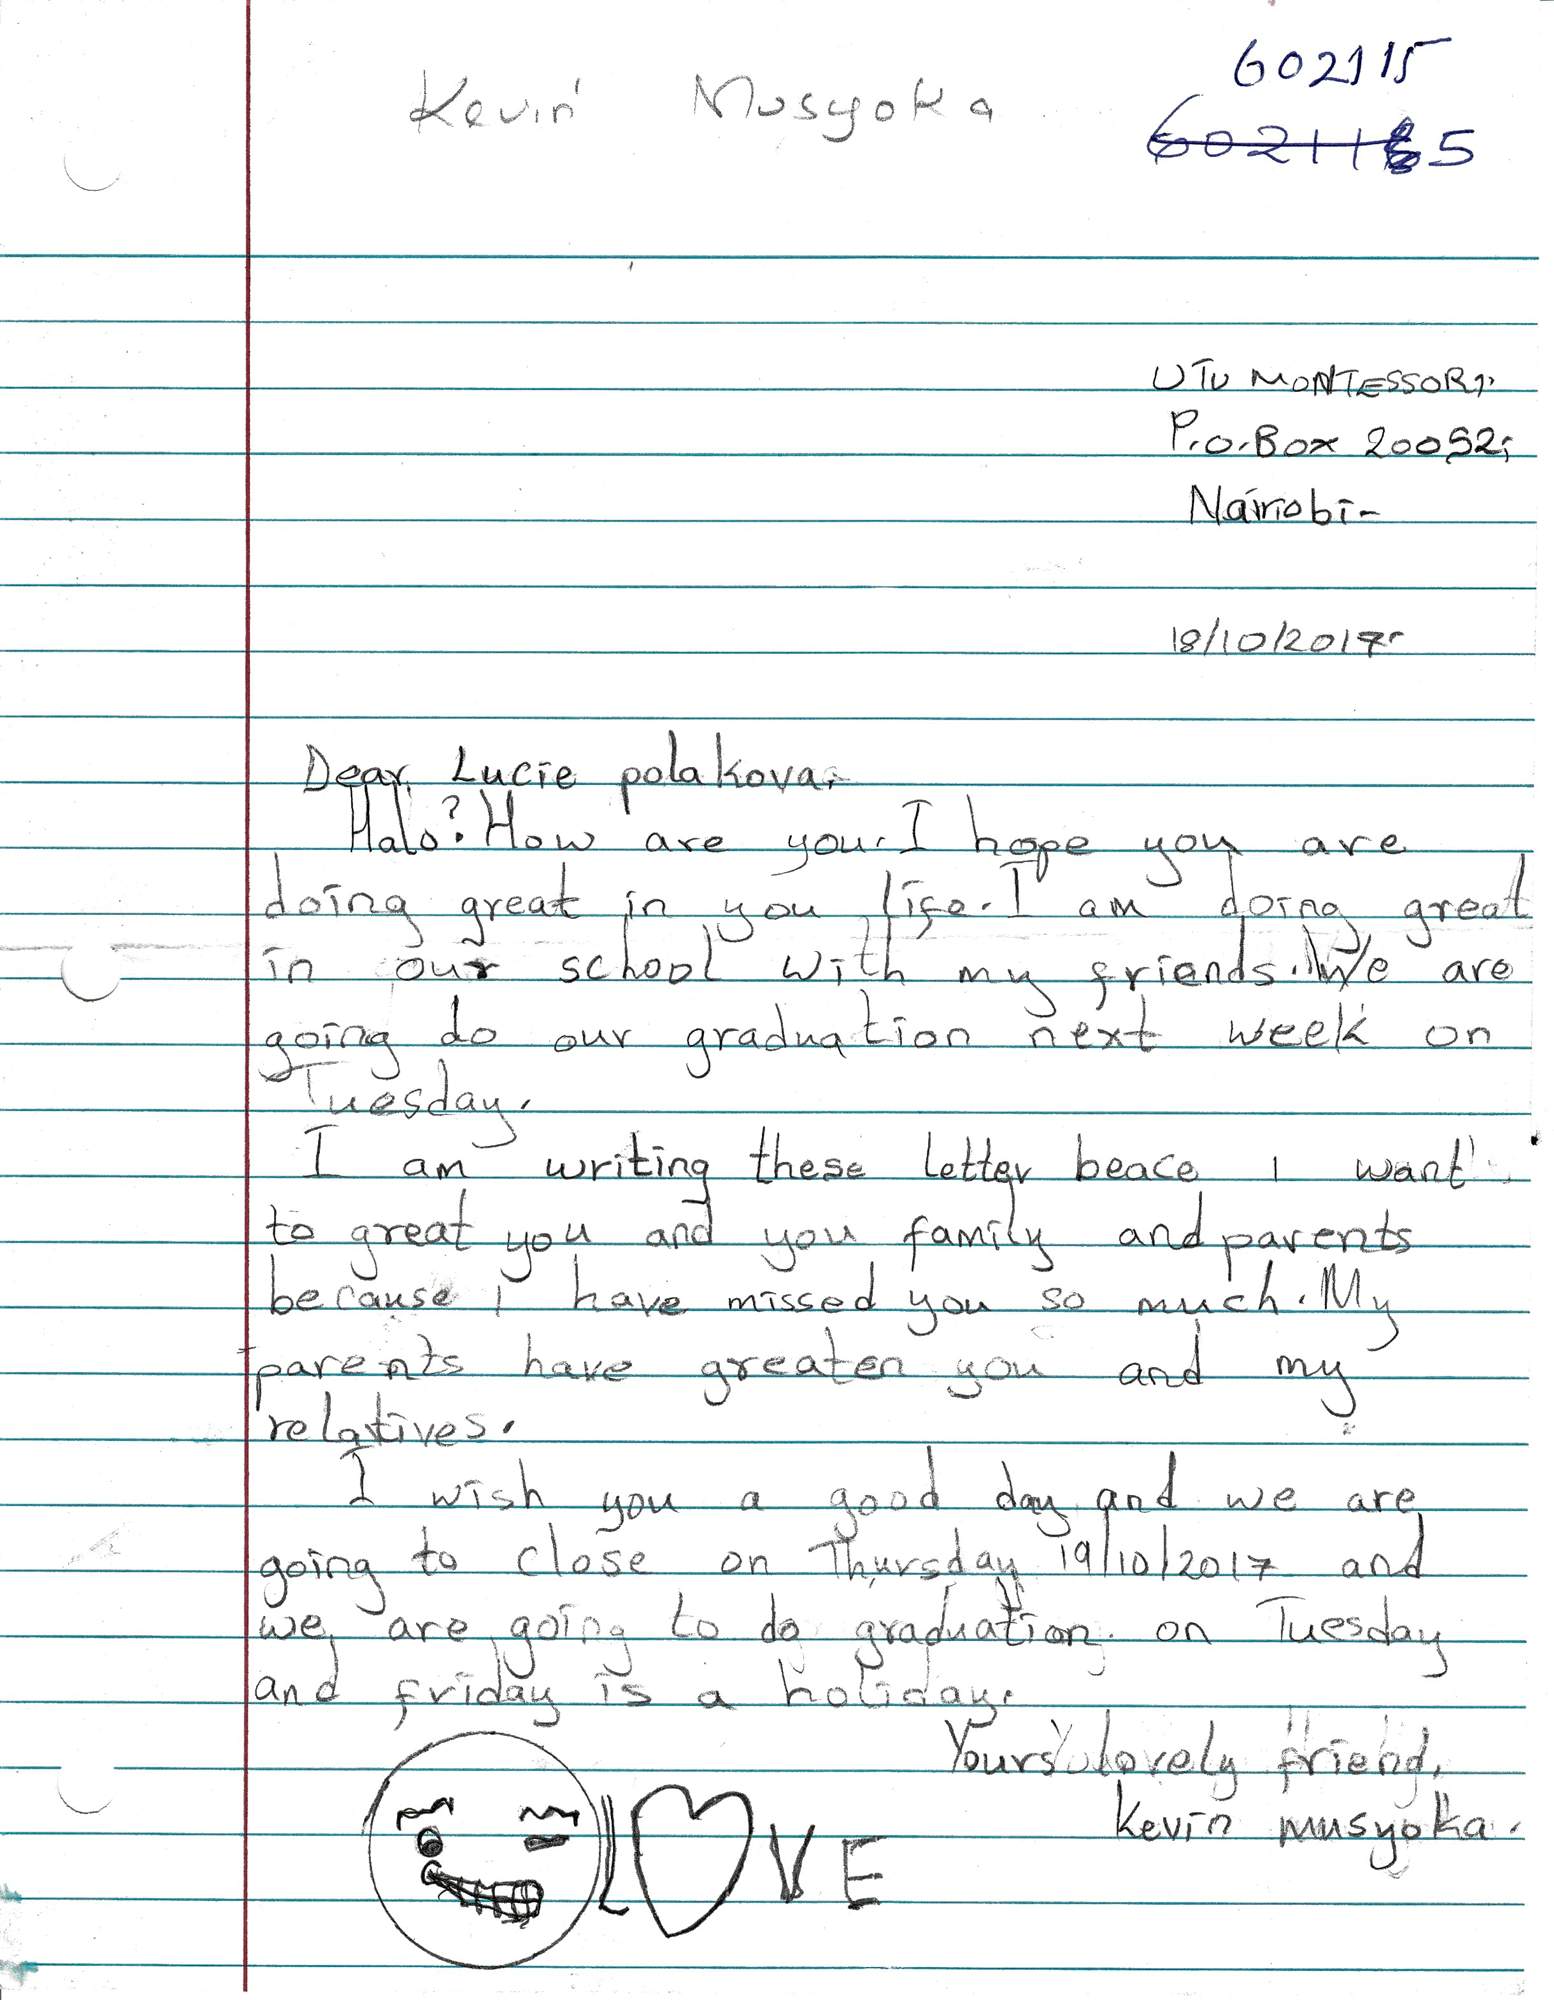 Kevin Musyoka
602115
6021185
UTU MONTESSORI.
P.O.BOX 20052;
Nairobi-
18/10/2017.
Dear, Lucie polakova,
Halo? How are you. I hope you are
doing great in you life. I am doing great
in our school with my friends. We are
going do our graduation next week on
Tuesday.
I am writing these letter beace i want
to great you and you family and parents
because i have missed you so much. My
parents have greaten you and my
relatives.
I wish you a good day and we are
going to close on Thursday 19/10/2017 and
we are going to do graduation. on Tuesday
and friday is a holiday.
Yours lovely friend,
Kevin musyoka.
LOVE